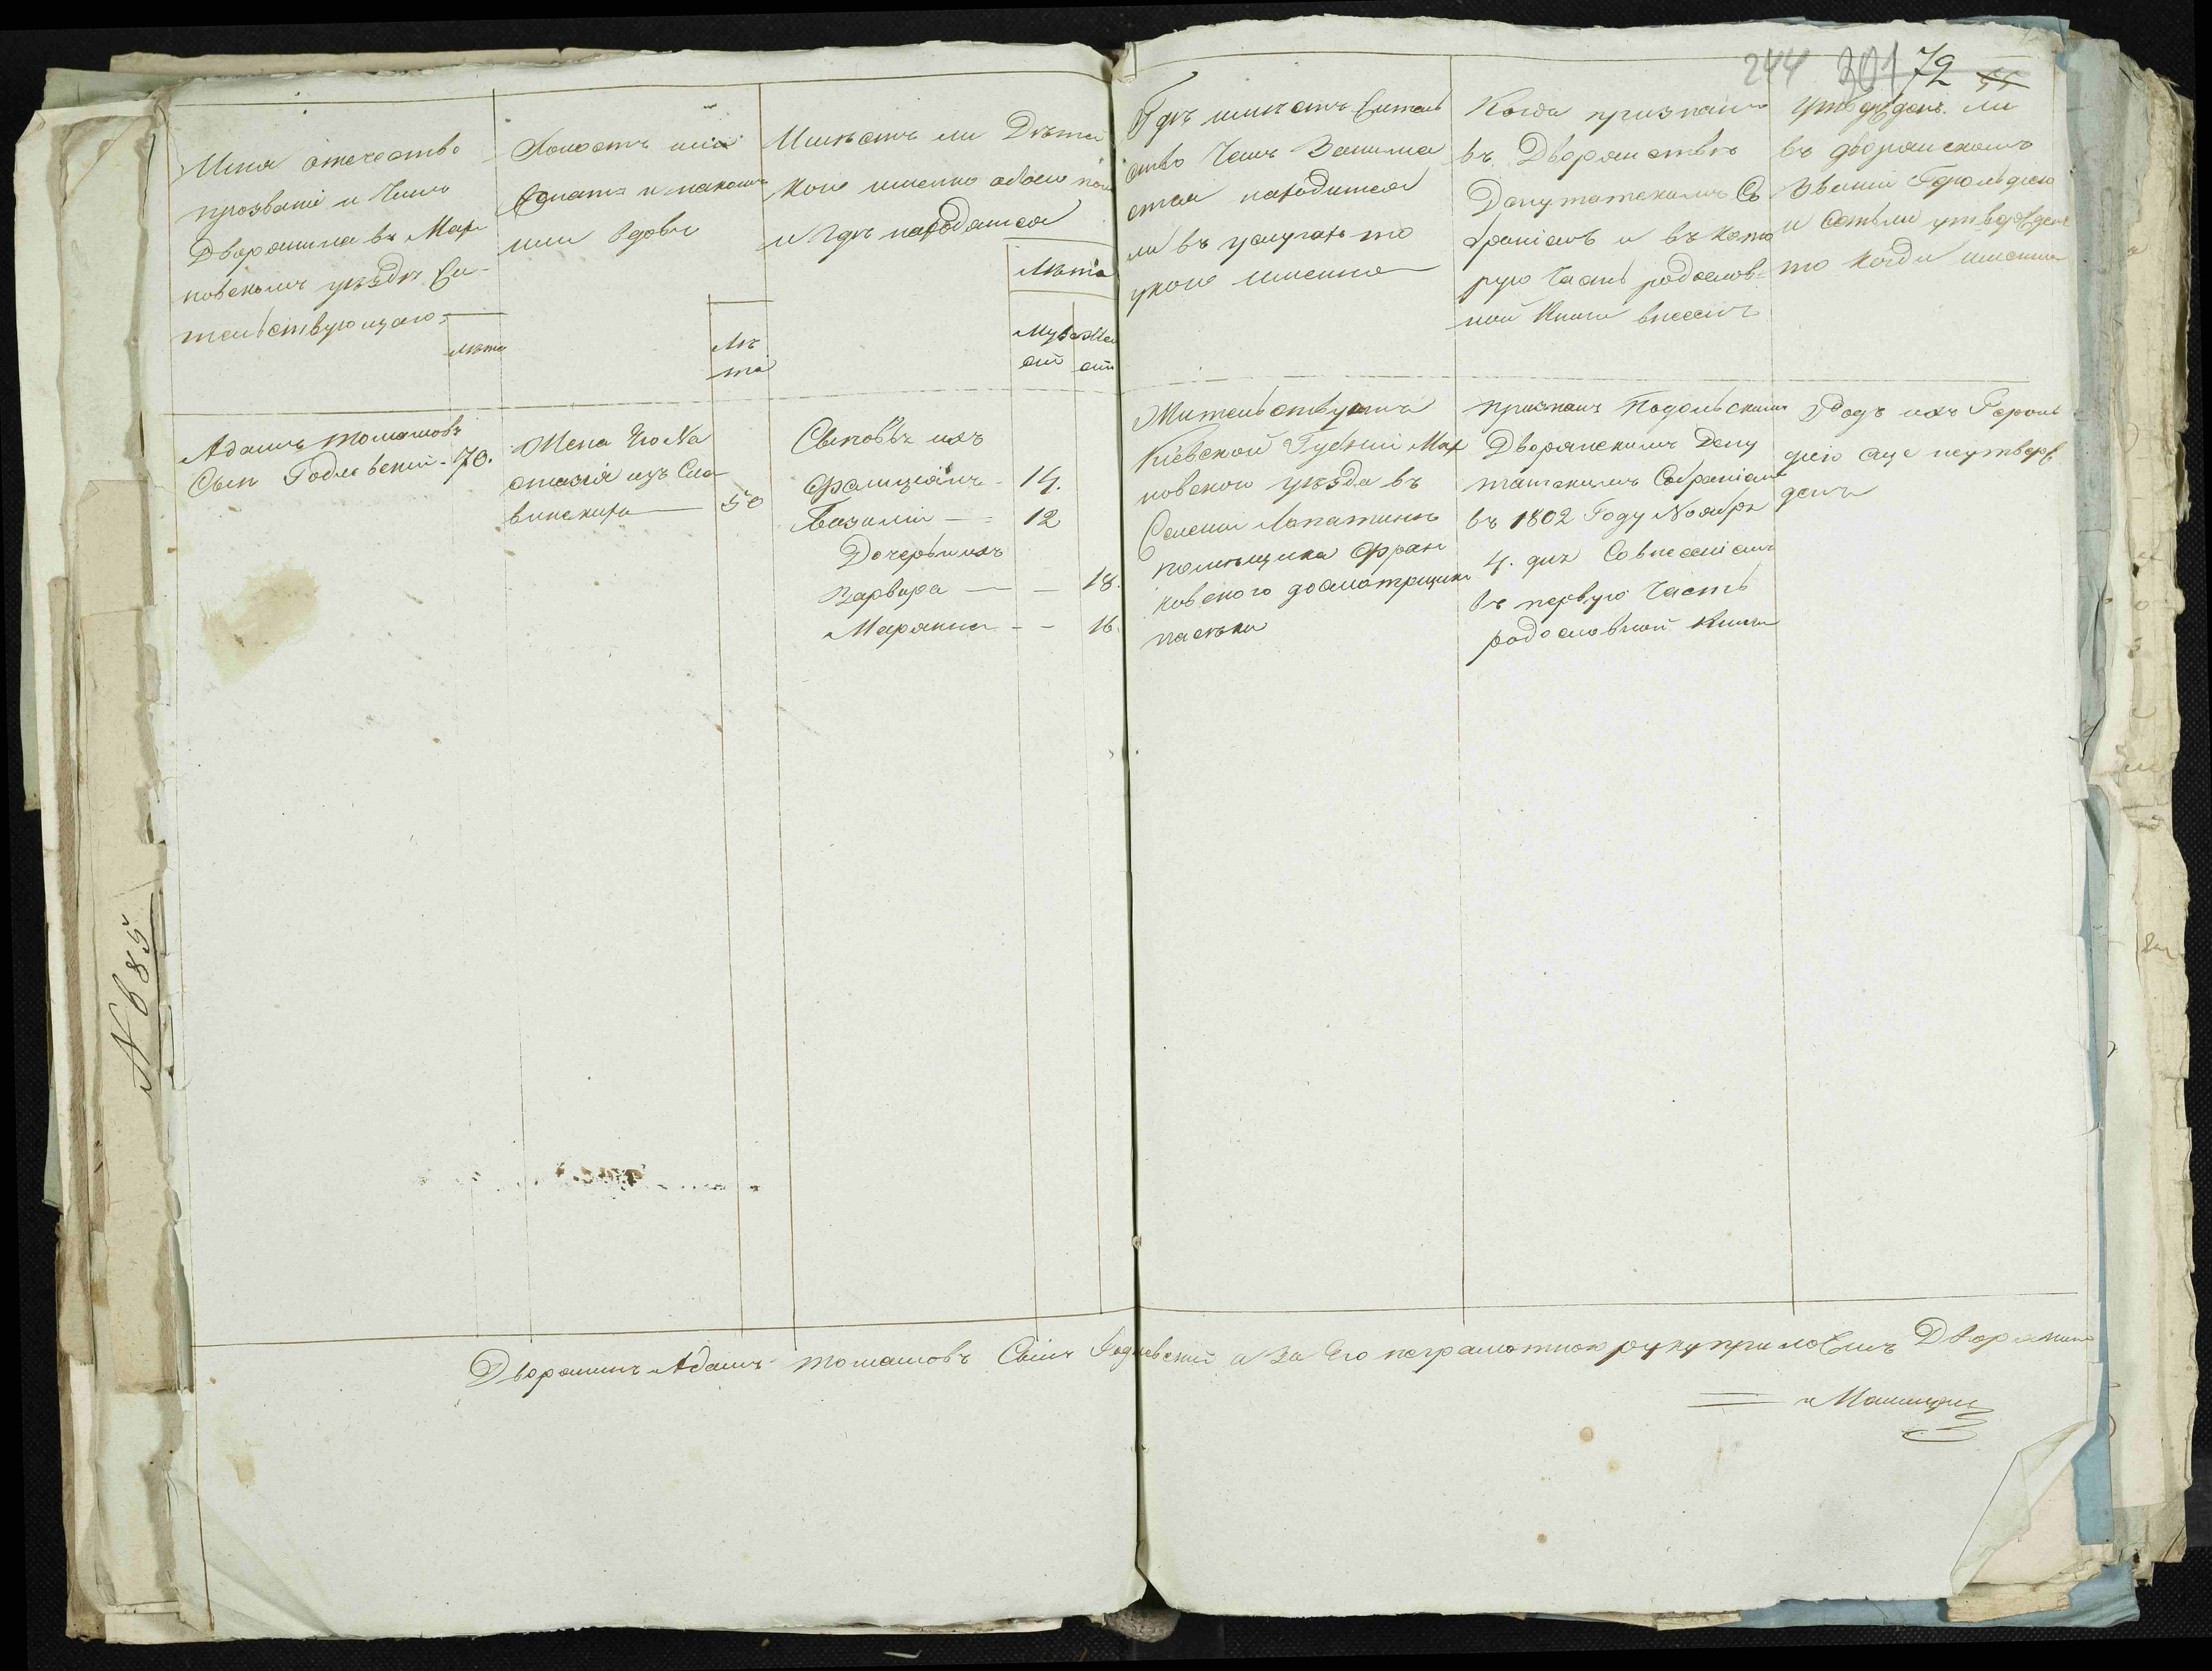 244 301 72
Имя отечество
прозваніе и Чинъ
Дворянина въ Мах
новскомъ уѣздѣ Жи-
тельствующаго,
лѣта
Холостъ или
Женатъ и накомъ
или вдовъ
лѣ
та
Имѣетъ ли Дѣтей
кого именно обоего пола
и гдѣ находятся
Лѣта
Муж Жен
скій скій
Гдѣ имѣетъ Житель
ство Чемъ Занима
ется находится
ли въ услугахъ то
укого именно
Когда признанъ
въ Дворянствѣ
Депутатскимъ Со
браніемъ и въ кото
рую Часть родослов-
ной Книги внесенъ
утвержденъ ли
въ дворянскомъ
Званіи Герольдіею
и Естьли утвержденъ
то когда именно
Адамъ томашовъ
Сынъ Годлевскій - 70.
Жена Его На
стазія изъ Сла
винскихъ 50
Сыновья ихъ
Фелиціанъ - 14.
Базилій - 12
Дочеры ихъ
Варвара - - 18.
Марянна - - 16.
Жительствуетъ
Кіевской Губерніи Мах
новского уѣзда въ
Селеніи Лопатинѣ
помѣщика Фран
ковского досмотрщикомъ
пасеки
признанъ Подольскимъ
Дворянскимъ Депу
татскимъ Собраніемъ
въ 1802 Году Ноября
4. дня Совнесеніемъ
въ первую Часть
родословной Книги
Родъ ихъ Героль
діею еще неутверж
денъ
N 685
Дворянинъ Адамъ томашовъ Сынъ Годлевскій а За Его неграмотного руку приложилъ Дворянинъ